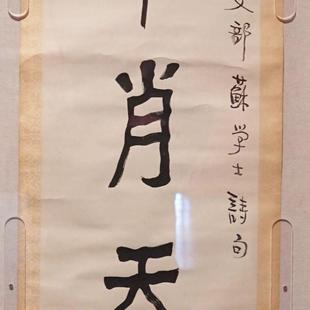 部蘇学士詩句
肖天